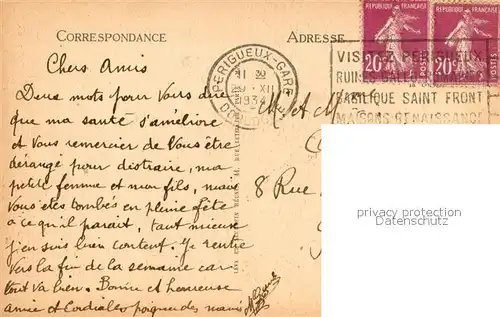 CORRESPONDANCE
ADRESSE
Chers Amis
Deux mots pour vous dire
que ma santé s'améliore
et vous remercier de vous être
dérangé pour distraire, ma
petite femme et mon fils, mais
vous êtes tombés en pleine fête
à ce qu'il parait, tant mieux
j'en suis bien content. Je rentre
vers la fin de la semaine car
tout va bien. Bonne et heureuse
année et Cordiales poignées des mains
PERIGUEUX-GARE
11 30
XII
1934
DORDOGNE
REPUBLIQUE FRANÇAISE
20c
POSTES
REPUBLIQUE FRANÇAISE
20c
POSTES
VISITEZ PERIGUEUX
RUINES GALLO
BASILIQUE SAINT FRONT
MAISONS RENAISSANCE
Mr et M
8 Rue
persönliche Daten
Datenschutz